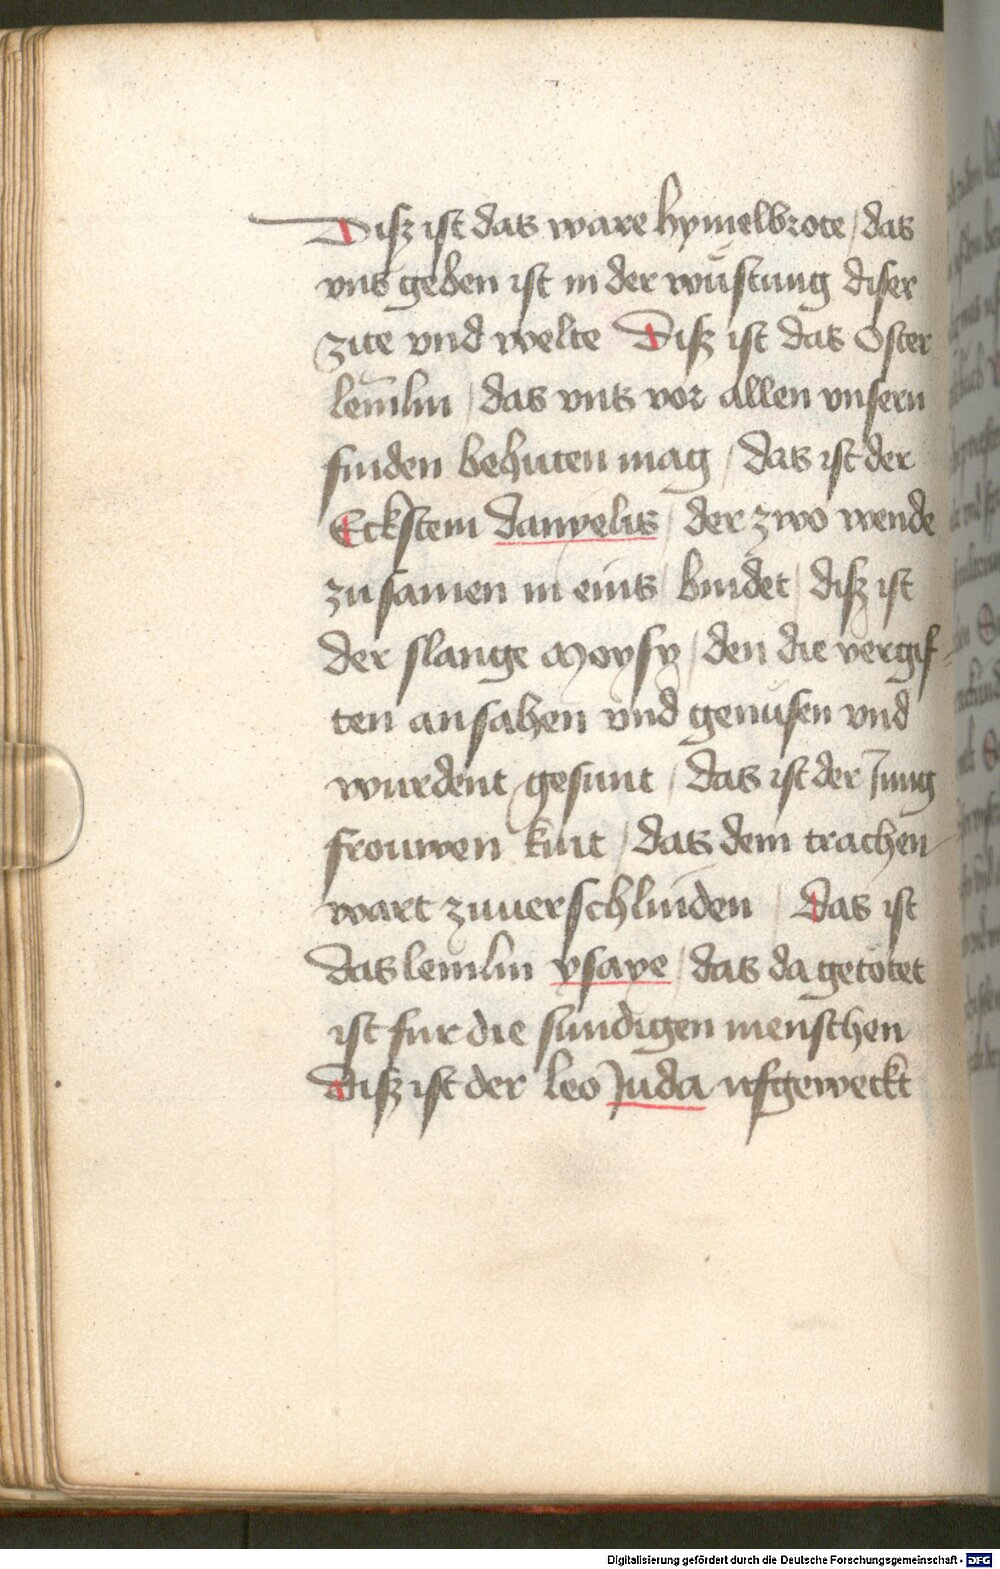 Disz ist das ware hymelbrote / das
vns geben ist in der wústung diser
zite vnd welte Disz ist das Oster
lem̄lin / das vns vor allen vnsern
sinden behuten mag / das ist der
Eckstein danyelis / der zwo wende
zusamen in eins / bindet / disz ist
der slange Moysy / den die vergif-
ten ansahen vnd genúsen vnd
wurdent gesunt / das ist der Jung
frouwen kint / das dem trachen
wart zuuerschlinden / Das ist
das lemlin ysaye / das da getótet
ist fur die sundigen menschen
Disz ist der leo Juda ufgeweckt
Digitalisierung gefördert durch die Deutsche Forschungsgemeinschaft - DFG